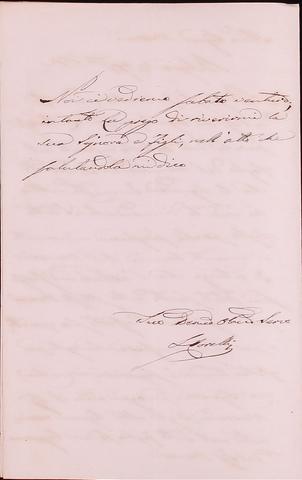 Noi ci vedremo sabato venturo,
intanto La prego di riverirmi la
sua Signora e figli, nell'atto che
salutandola mi dico
Suo Devmo Obbmo Serve